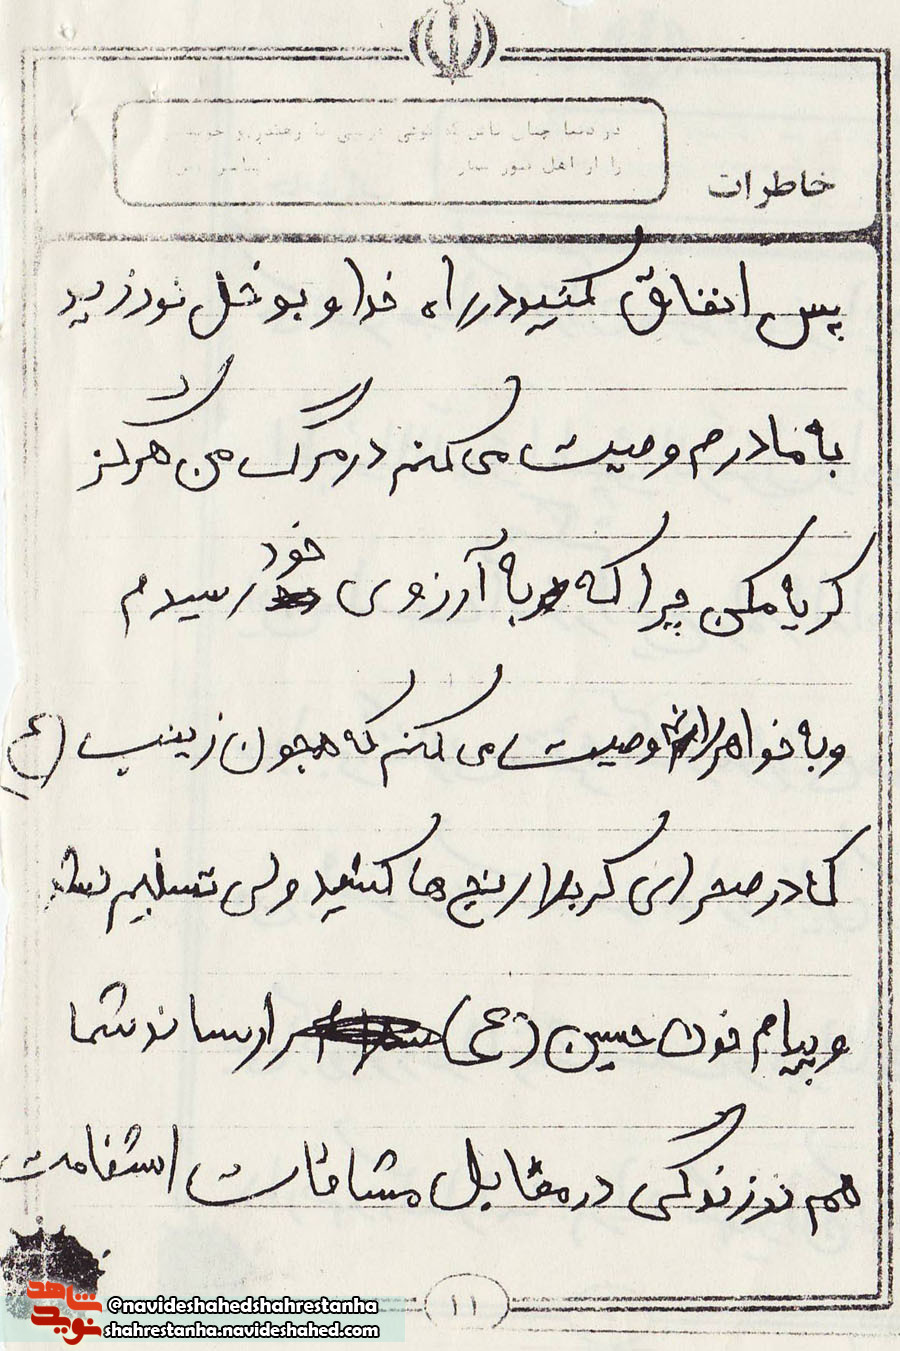 خاطرات
پس انفاق کنید در راه خدا و بوخل نورزید
به مادرم وصیت می کنم در مرگ من هرگز
گریه مکن چرا که به آرزوی خود رسیدم
و به خواهرانم وصیت می کنم که همچون زینب (ع)
که در صحرای کربلا رنج ها کشید ولی تسلیم نشد
و پیام خون حسین (ع) را رساند شما
هم در زندگی در مقابل مشاقات استقامت
۱۱
شاهد
نوید
@navideshahedshahrestanha
shahrestanha.navideshahed.com